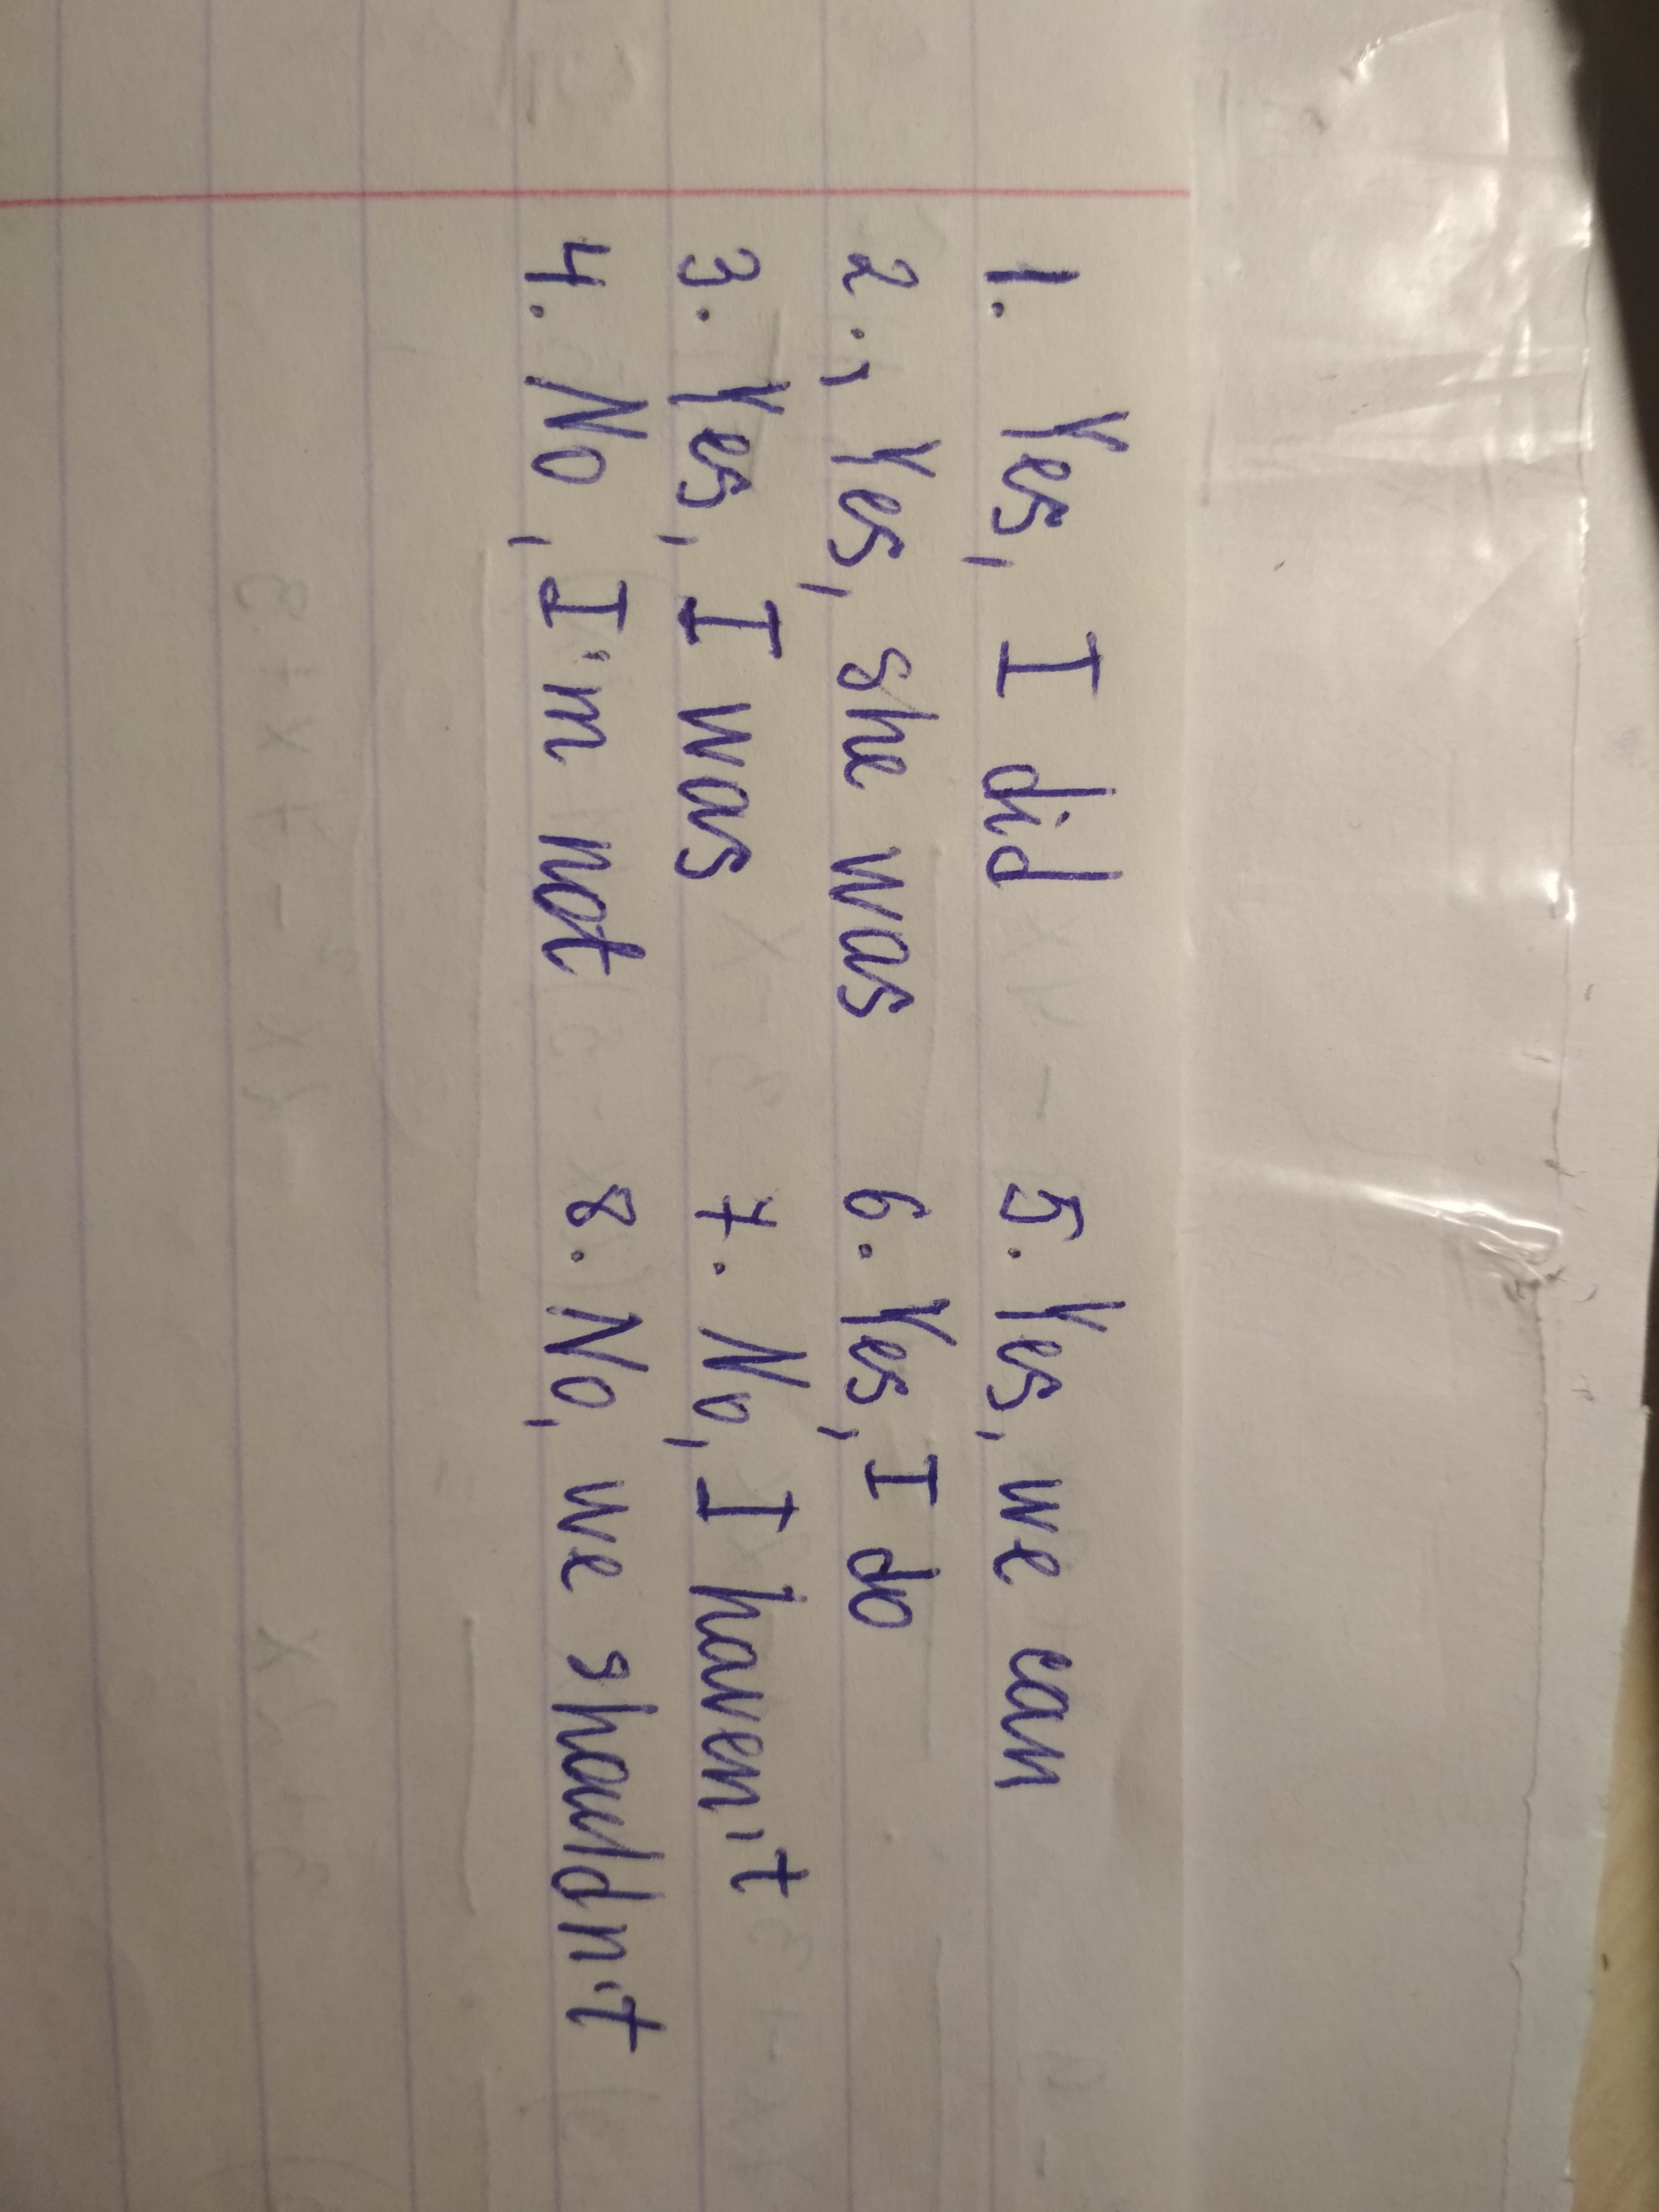 1. Yes, I did
2., Yes, she was
3. Yes, I was
4. No, I'm not
5. Yes, we can
6. Yes, I do
7. No, I haven't
8. No, we shouldn't